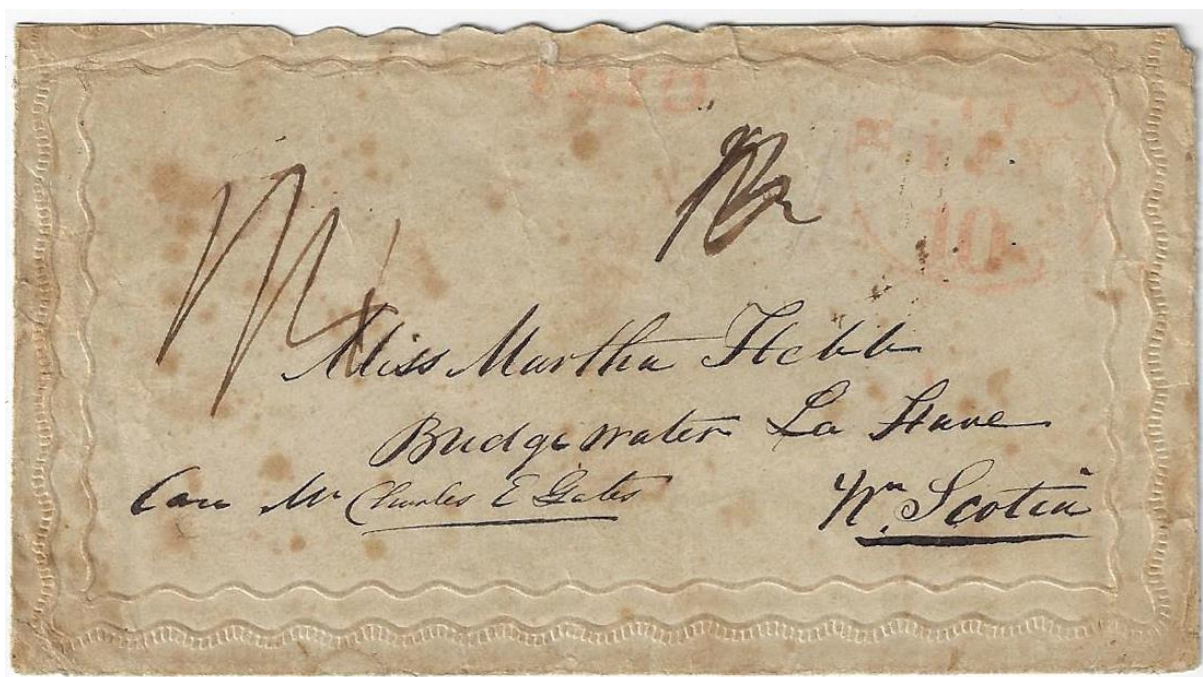 10
Miss Martha Hebb
Bridgewater La Have
Care Mr Charles E Gates
N. Scotia